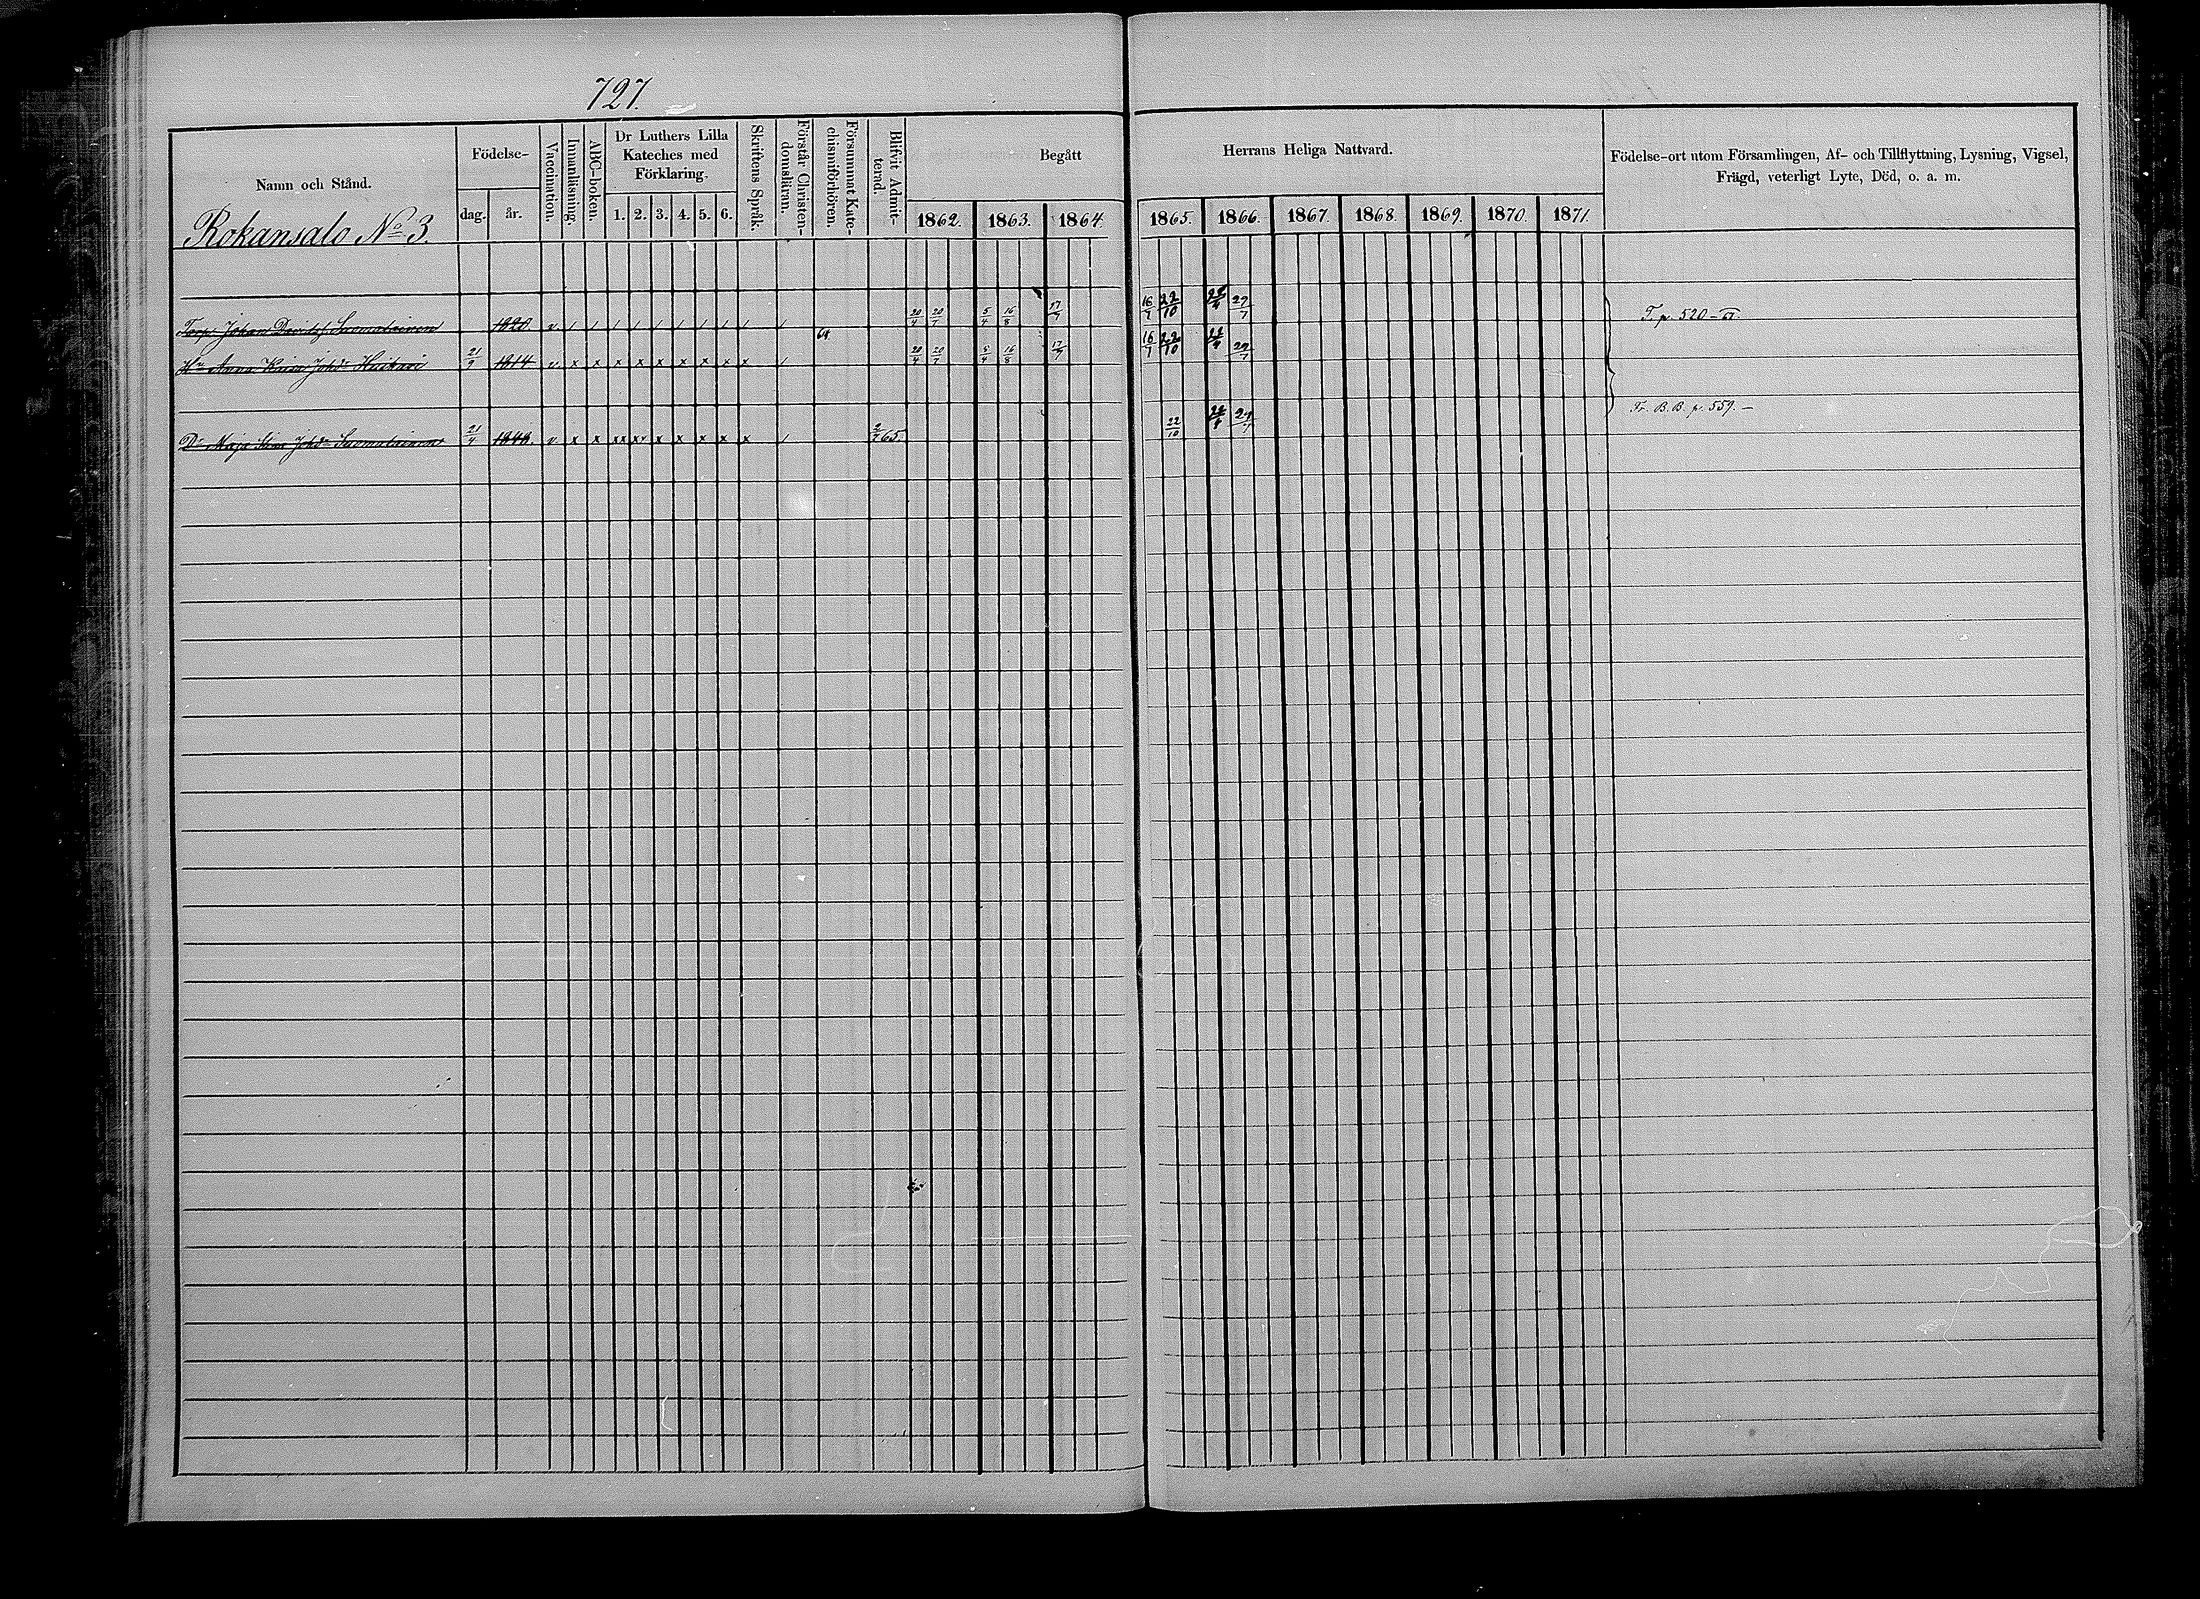 727.
Namn och Stånd.
Födelse-
dag.
år.
Vaccination.
Innanläsning.
ABC-boken.
Dr Luthers Lilla
Kateches med
Förklaring.
1. 2. 3. 4. 5. 6.
Skriftens Språk.
Förstår Christen-
domsläran.
Försummat Kate-
chismiförhören.
Blifvit Admit-
terad.
Begått
Herrans Heliga Nattvard.
1862. 1863. 1864. 1865. 1866. 1867. 1868. 1869. 1870. 1871.
Födelse-ort utom Församlingen, Af- och Tillflyttning, Lysning, Vigsel,
Frägd, veterligt Lyte, Död, o. a. m.
Rokansalo No 3.
Torp. Johan Davidsf. Suomalainen 1820. v / / / / / / / / / / 20/4 20/7 5/4 16/8 17/7 16/7 22/10 29/7 Tr. p. 520 - VI.
64
Hu Anna Kaisa Johdr 21/9 1814 v x x x x x x x x x / 20/4 20/7 5/4 16/8 17/7 16/7 22/10 29/7
Tr. B. B. p. 559. -
Dr Maja Stina Johdr Suomalainen 21/4 1848. v x x xx xx x x x x x / 2/7 65. 22/10 29/7